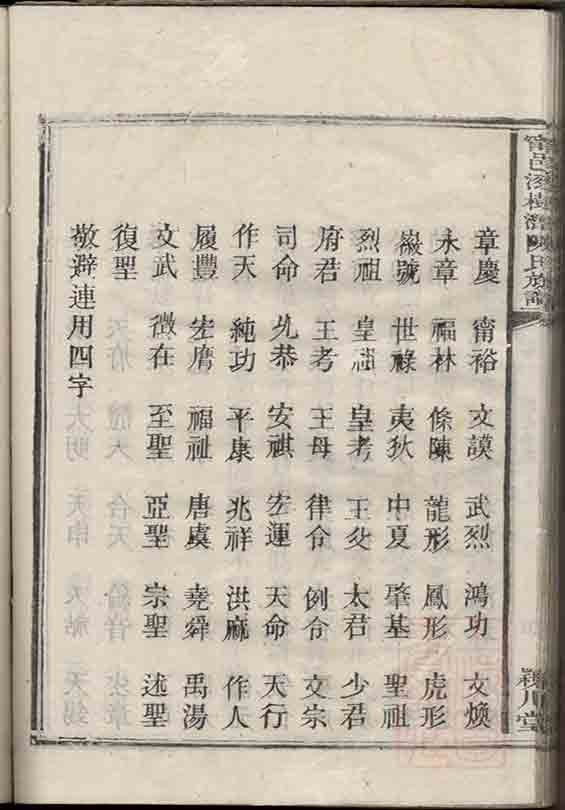 甯邑漆樹灣陳氏族譜
潁川堂
章慶 甯裕 文謨 武烈 鴻功 文煥
永章 福林 條陳 龍形 鳳形 虎形
徽號 世祿 夷狄 中夏 肇基 聖祖
烈祖 皇祖 皇考 王父 太君 少君
府君 王考 王母 律令 例令 文宗
司命 允恭 安祺 宏運 天命 天行
作天 純功 平康 兆祥 洪庥 作人
履豐 宏膺 福祉 唐虞 堯舜 禹湯
文武 徵在 至聖 亞聖 宗聖 述聖
復聖
敬避連用四字